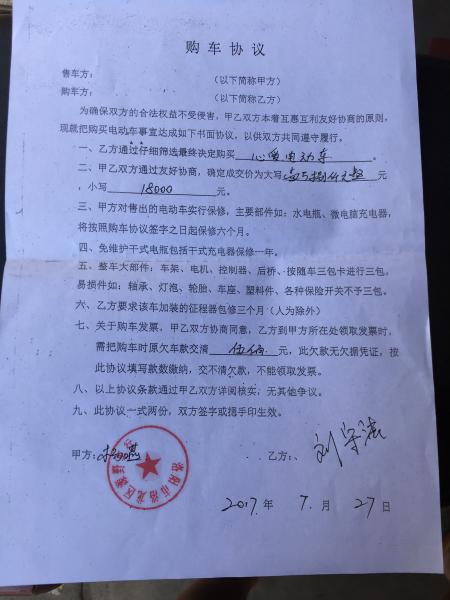 购车协议
售车方： （以下简称甲方）
购车方： （以下简称乙方）
为确保双方的合法权益不受侵害，甲乙双方本着互惠互利友好协商的原则，
现就把购买电动车事宜达成如下书面协议，以供双方共同遵守履行。
一、乙方通过仔细筛选最终决定购买 心爱电动车 。
二、甲乙双方通过友好协商，确定成交价为大写 壹万捌仟元整 元
，小写 18000 元。
三、甲方对售出的电动车实行保修，主要部件如：水电瓶、微电脑充电器，
将按照购车协议签字之日起保修六个月。
四、免维护干式电瓶包括干式充电器保修一年。
五、整车大部件：车架、电机、控制器、后桥、按随车三包卡进行三包，
易损件如：轴承、灯泡、轮胎、车座、塑料件、各种保险开关不予三包。
六、乙方要求该车加装的征程器包修三个月（人为除外）
七、关于购车发票，甲乙双方协商同意，乙方到甲方所在处领取发票时，
需把购车时原欠车款交清 伍佰 元，此欠款无欠据凭证，按
此协议填写款数缴纳，交不清欠款，不能领取发票。
八、以上协议条款通过甲乙双方详阅核实，无其他争议。
九、此协议一式两份，双方签字或摁手印生效。
甲方： 乙方：、 刘
洛阳市洛龙区
2017 年 7 月 27 日